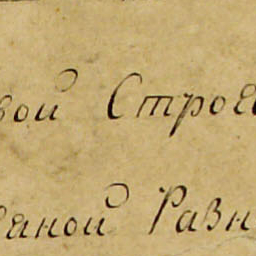 вой Строе
аной Разн